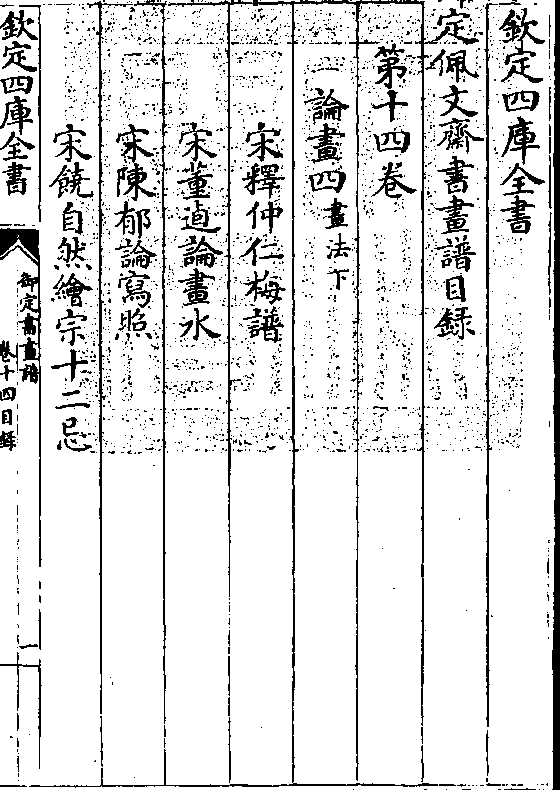 欽定四庫全書
定佩文齋書畫譜目録
第十四卷
論畫四畫法下
宋釋仲仁梅譜
宋董逌論畫水
宋陳郁論寫照
宋饒自然繪宗十二忌
欽定四庫全書
御定書畫譜
卷十四目録
一